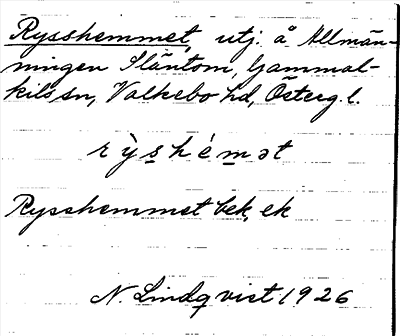 Rysshemmet, utj. å Allmän-
ningen Släntom, Gammal-
kils sn, Valkebo hd, Österg. l.
rỳs̱hém̱ət
Rysshemmet bek, ek
N. Lindqvist 1926